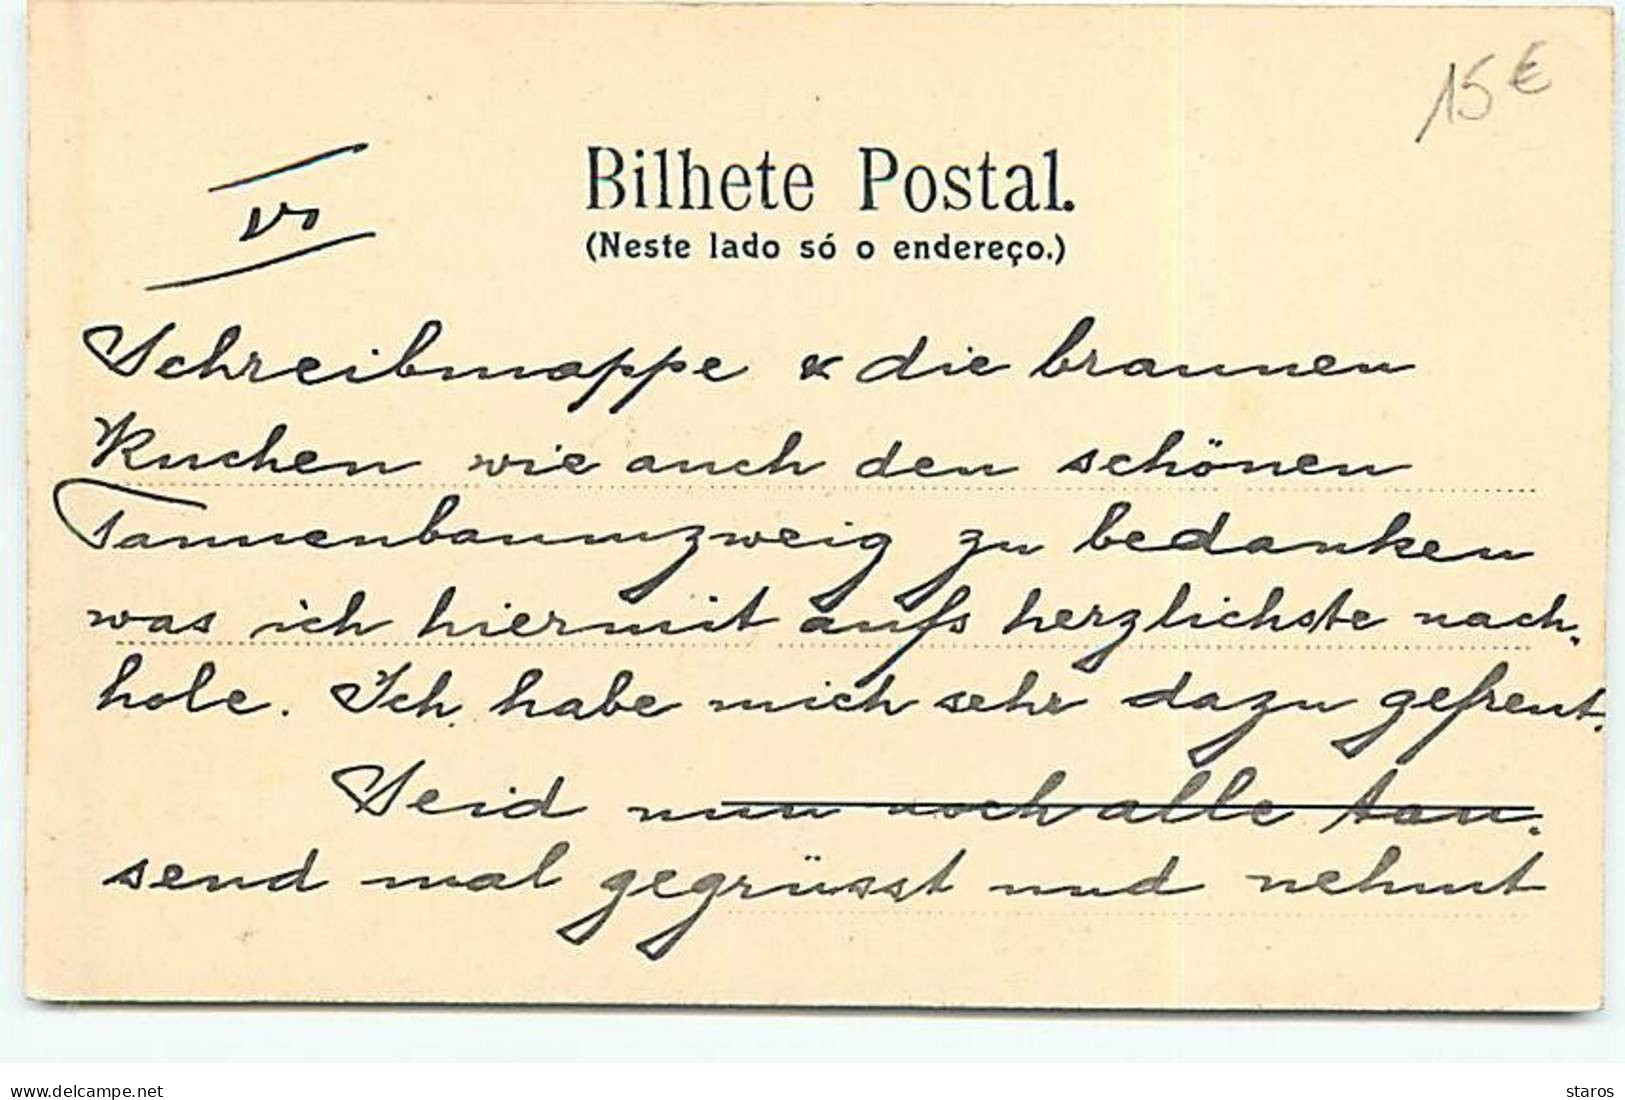 15 €
Bilhete Postal.
(Neste lado só o endereço.)
Schreibmappe & die braunen
Kuchen wie auch den schönen
Tannenbaumzweig zu bedanken
was ich hiermit aufs herzlichste nach-
hole. Ich habe mich sehr dazu gefreut.
Seid nun noch alle tau-
send mal gegrüsst und nehmt
delcampe.net
staros